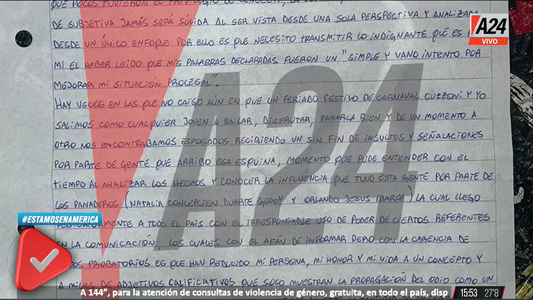 QUE POCOS TUVIERON EL
DE SUBJETIVA JAMÁS SERÁ SÓLIDA AL SER VISTA DESDE UNA SOLA PERSPECTIVA Y ANALIZADA
DESDE UN ÚNICO ENFOQUE POR ELLO ES QUE NECESITO TRANSMITIR LO INDIGNANTE QUE ES
MÍ EL HABER LEÍDO QUE MIS PALABRAS DECLARADAS FUERON UN "SIMPLE Y VANO INTENTO POR
MEJORAR MI SITUACIÓN PROCESAL".
HAY VECES EN LAS QUE NO CAIGO AÚN EN QUE UN FERIADO FESTIVO DE CARNAVAL GUZZONI Y YO
SALIMOS COMO CUALQUIER JOVEN A BAILAR, DISFRUTAR, PASARLA BIEN Y DE UN MOMENTO A
OTRO NOS ENCONTRABAMOS ESPOSADOS RECIBIENDO UN SIN FIN DE INSULTOS Y SEÑALACIONES
POR PARTE DE GENTE QUE ARRIBO ESA ESQUINA, MOMENTO QUE PUDE ENTENDER CON EL
TIEMPO AL ANALIZAR LOS HECHOS Y CONOCER LA INFLUENCIA QUE TUVO ESTA GENTE POR PARTE DE
LOS PANADEROS (NATALIA CONCEPCION DUARTE GODOY Y ORLANDO JESUS IBARRA) LA CUAL LLEGO
A TODO EL PAÍS CON EL IRRESPONSABLE USO DE PODER DE CIERTOS REFERENTES
EN LA COMUNICACIÓN LOS CUALES CON EL AFÁN DE INFORMAR PERO CON LA CARENCIA DE
PROBATORIOS ES QUE HAN REDUCIDO MI PERSONA, MI HONOR Y MI VIDA A UN CONCEPTO Y
A MILES DE ADJETIVOS CALIFICATIVOS QUE SOLO MUESTRAN LA PROPAGACIÓN DEL ODIO COMO UN
A24
VIVO
A24
#ESTAMOSENAMERICA
A 144", para la atención de consultas de violencia de género, gratuita, en todo el país, disp
15:53 27°8